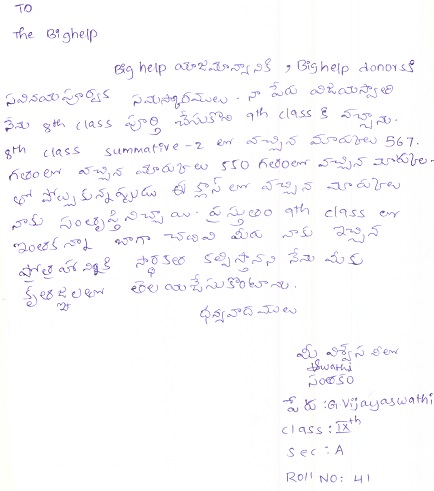 TO
The Bighelp
Big help యాజమాన్యానికి, Bighelp donorsకి
సవినయపూర్వక నమస్కారములు. నా పేరు విజయస్వాతి
నేను 8th class పూర్తి చేసుకొని 9th class కి వచ్చాను.
8th class summative-2 లో వచ్చిన మార్కులు 567.
గతంలో వచ్చిన మార్కులు 550 గతంలో వచ్చిన మార్కుల-
తో పోల్చుకున్నప్పుడు ఈ క్లాస్ లో వచ్చిన మార్కులు
నాకు సంతృప్తినిచ్చాయి. ప్రస్తుతం 9th class లో
ఇంతకన్నా బాగా చదివి మీరు నాకు ఇచ్చిన
ప్రోత్సాహానికి సార్థకత కల్పిస్తానని నేను మీకు
కృతజ్ఞతలతో తెలియచేసుకొంటాను.
ధన్యవాదములు
మీ విశ్వేసనీలో
swathi
సంతకం
పేరు : G. Vijayaswathi
class : IXth
sec : A
ROLL NO: 41